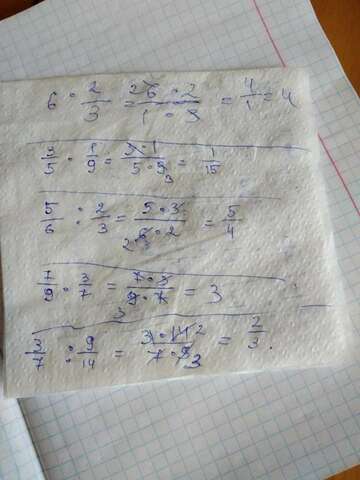 6 · 2/3 = 6 · 2 / 1 · 3 = 4/1 = 4
3/5 · 1/9 = 3 · 1 / 5 · 9 = 1/15
5/6 : 2/3 = 5 · 3 / 6 · 2 = 5/4
7/9 · 3/7 = 7 · 3 / 9 · 7 = 3
3/7 : 9/14 = 3 · 14 / 7 · 9 = 2/3.